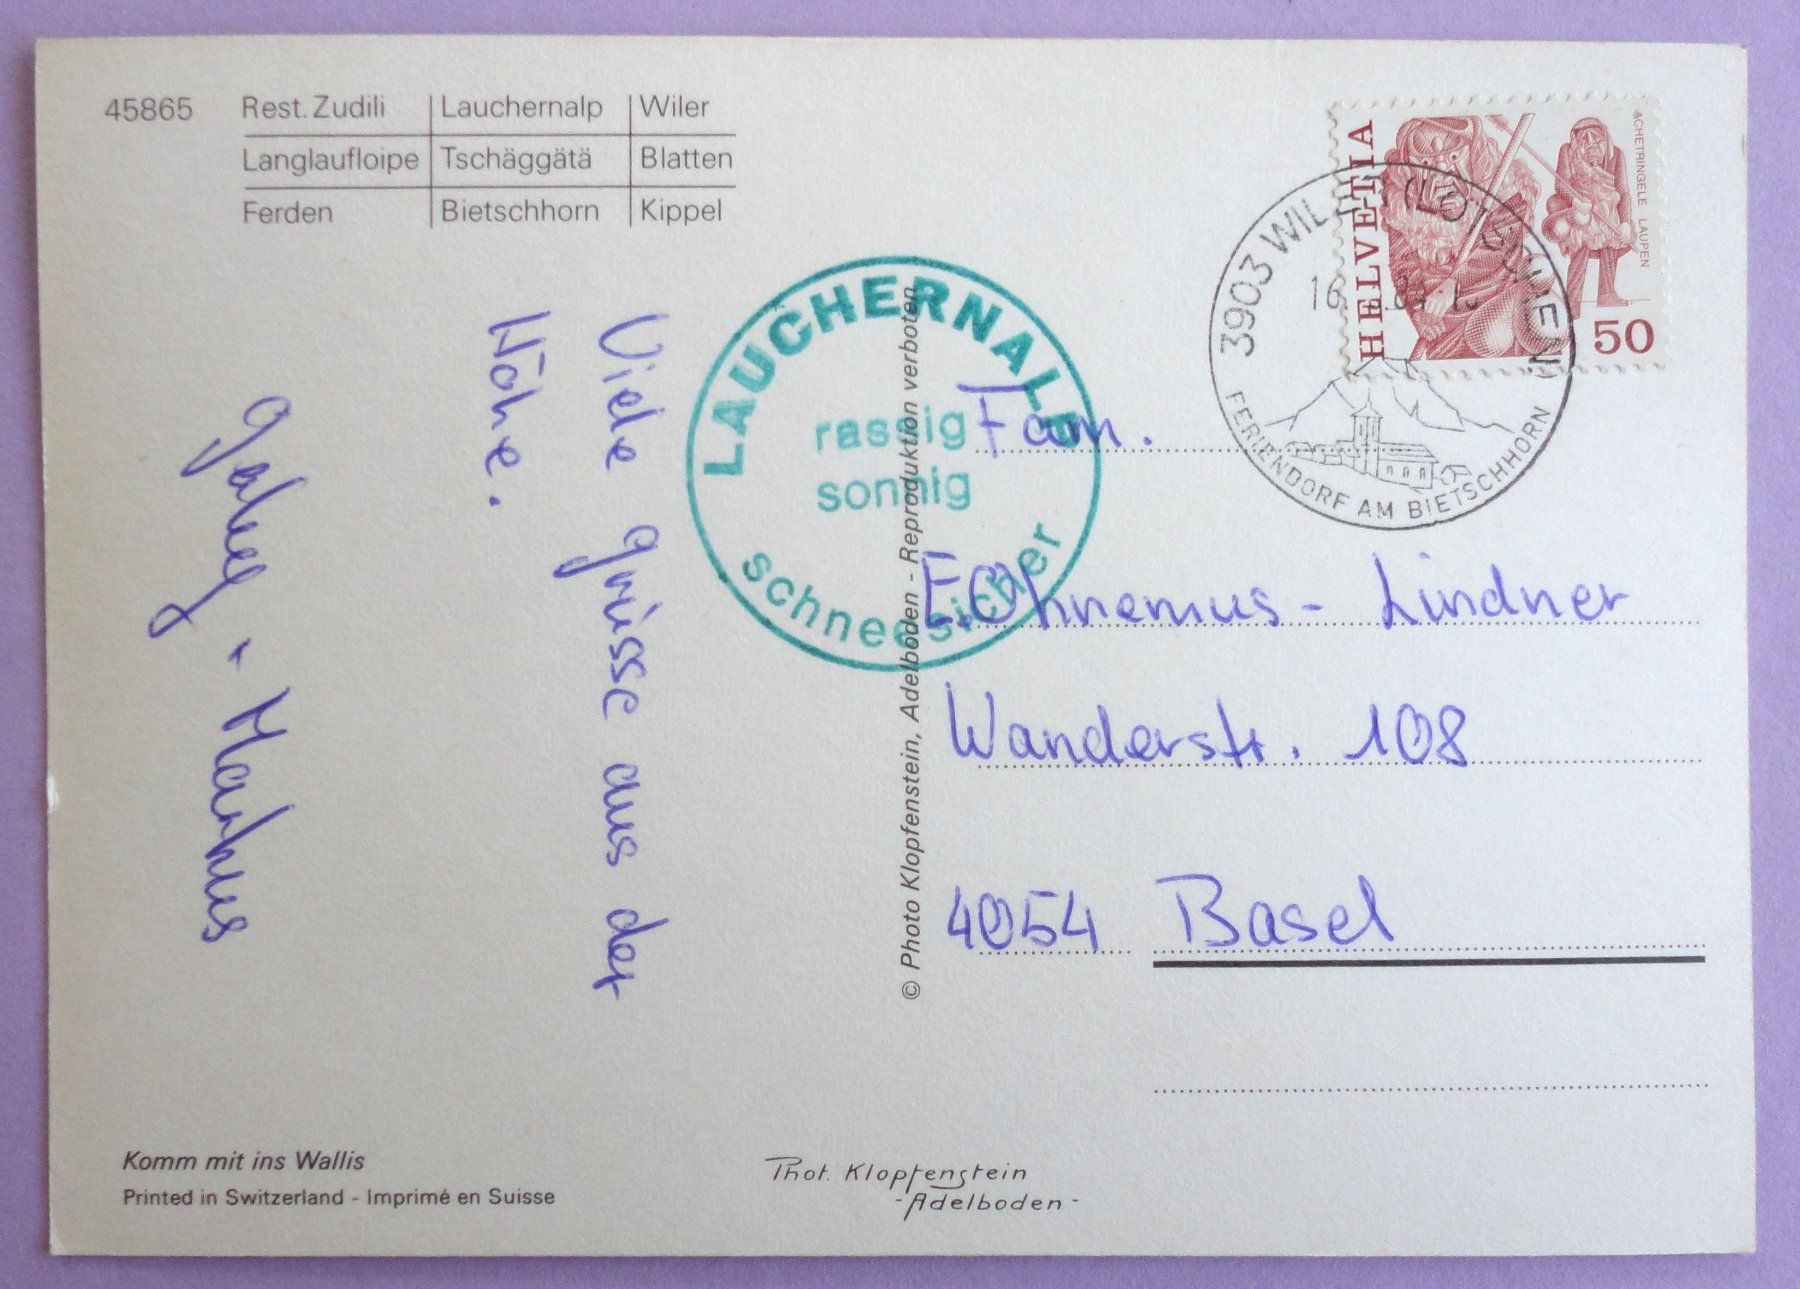 45865 Rest. Zudili Lauchernalp Wiler
Langlaufloipe Tschäggätä Blatten
Ferden Bietschhorn Kippel
HELVETIA
ACHETRINGELE LAUPEN
50
3903 WILER (LÖTSCHEN)
FERIENDORF AM BIETSCHHORN
LAUCHERNALP
rassig
sonnig
schneesicher
Viele grüsse aus der
Höhe.
+ Markus
© Photo Klopfenstein, Adelboden - Reproduktion verboten
Fam.
Ohnemus - Lindner
Wanderstr. 108
4054 Basel
Komm mit ins Wallis
Printed in Switzerland - Imprimé en Suisse
Phot. Klopfenstein
- Adelboden -